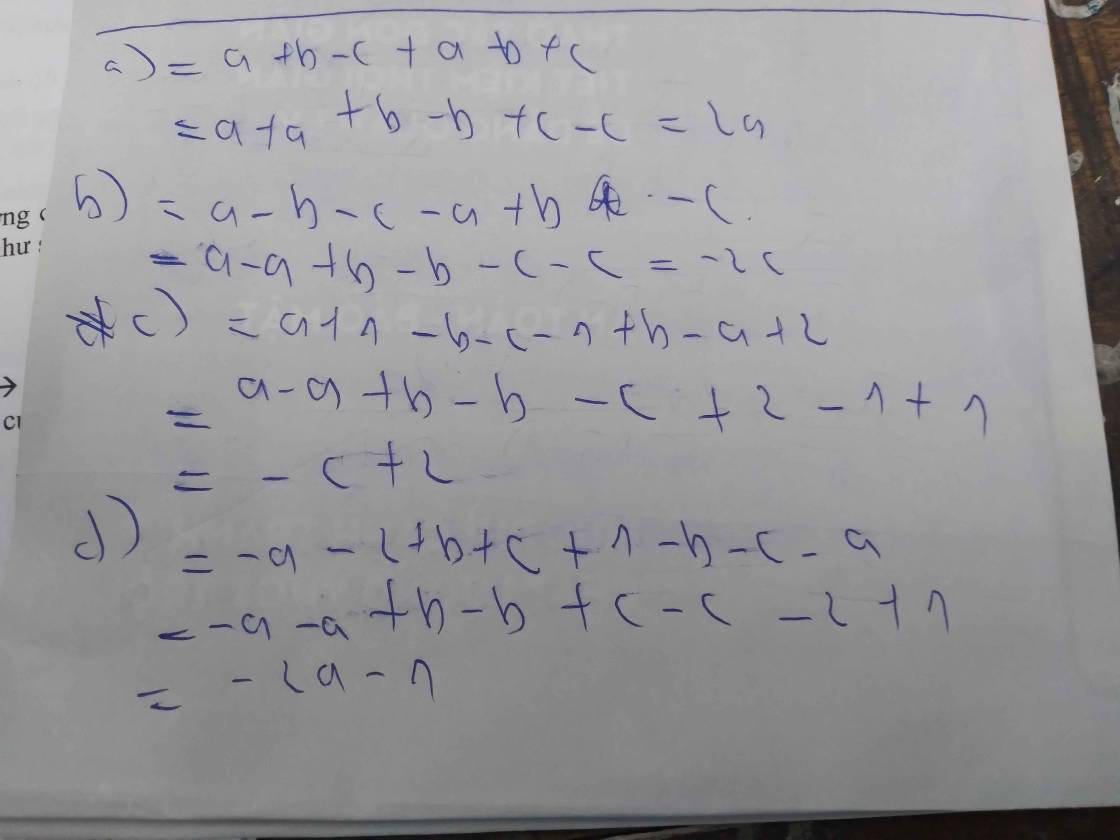 a) = a + b - c + a - b + c
= a + a + b - b + c - c = 2a
b) = a - b - c - a + b - c.
= a - a + b - b - c - c = -2c
c) = a + 1 - b - c - 1 + b - a + 2
= a - a + b - b - c + 2 - 1 + 1
= - c + 2
d) = -a - 2 + b + c + 1 - b - c - a
= -a - a + b - b + c - c - 2 + 1
= - 2a - 1